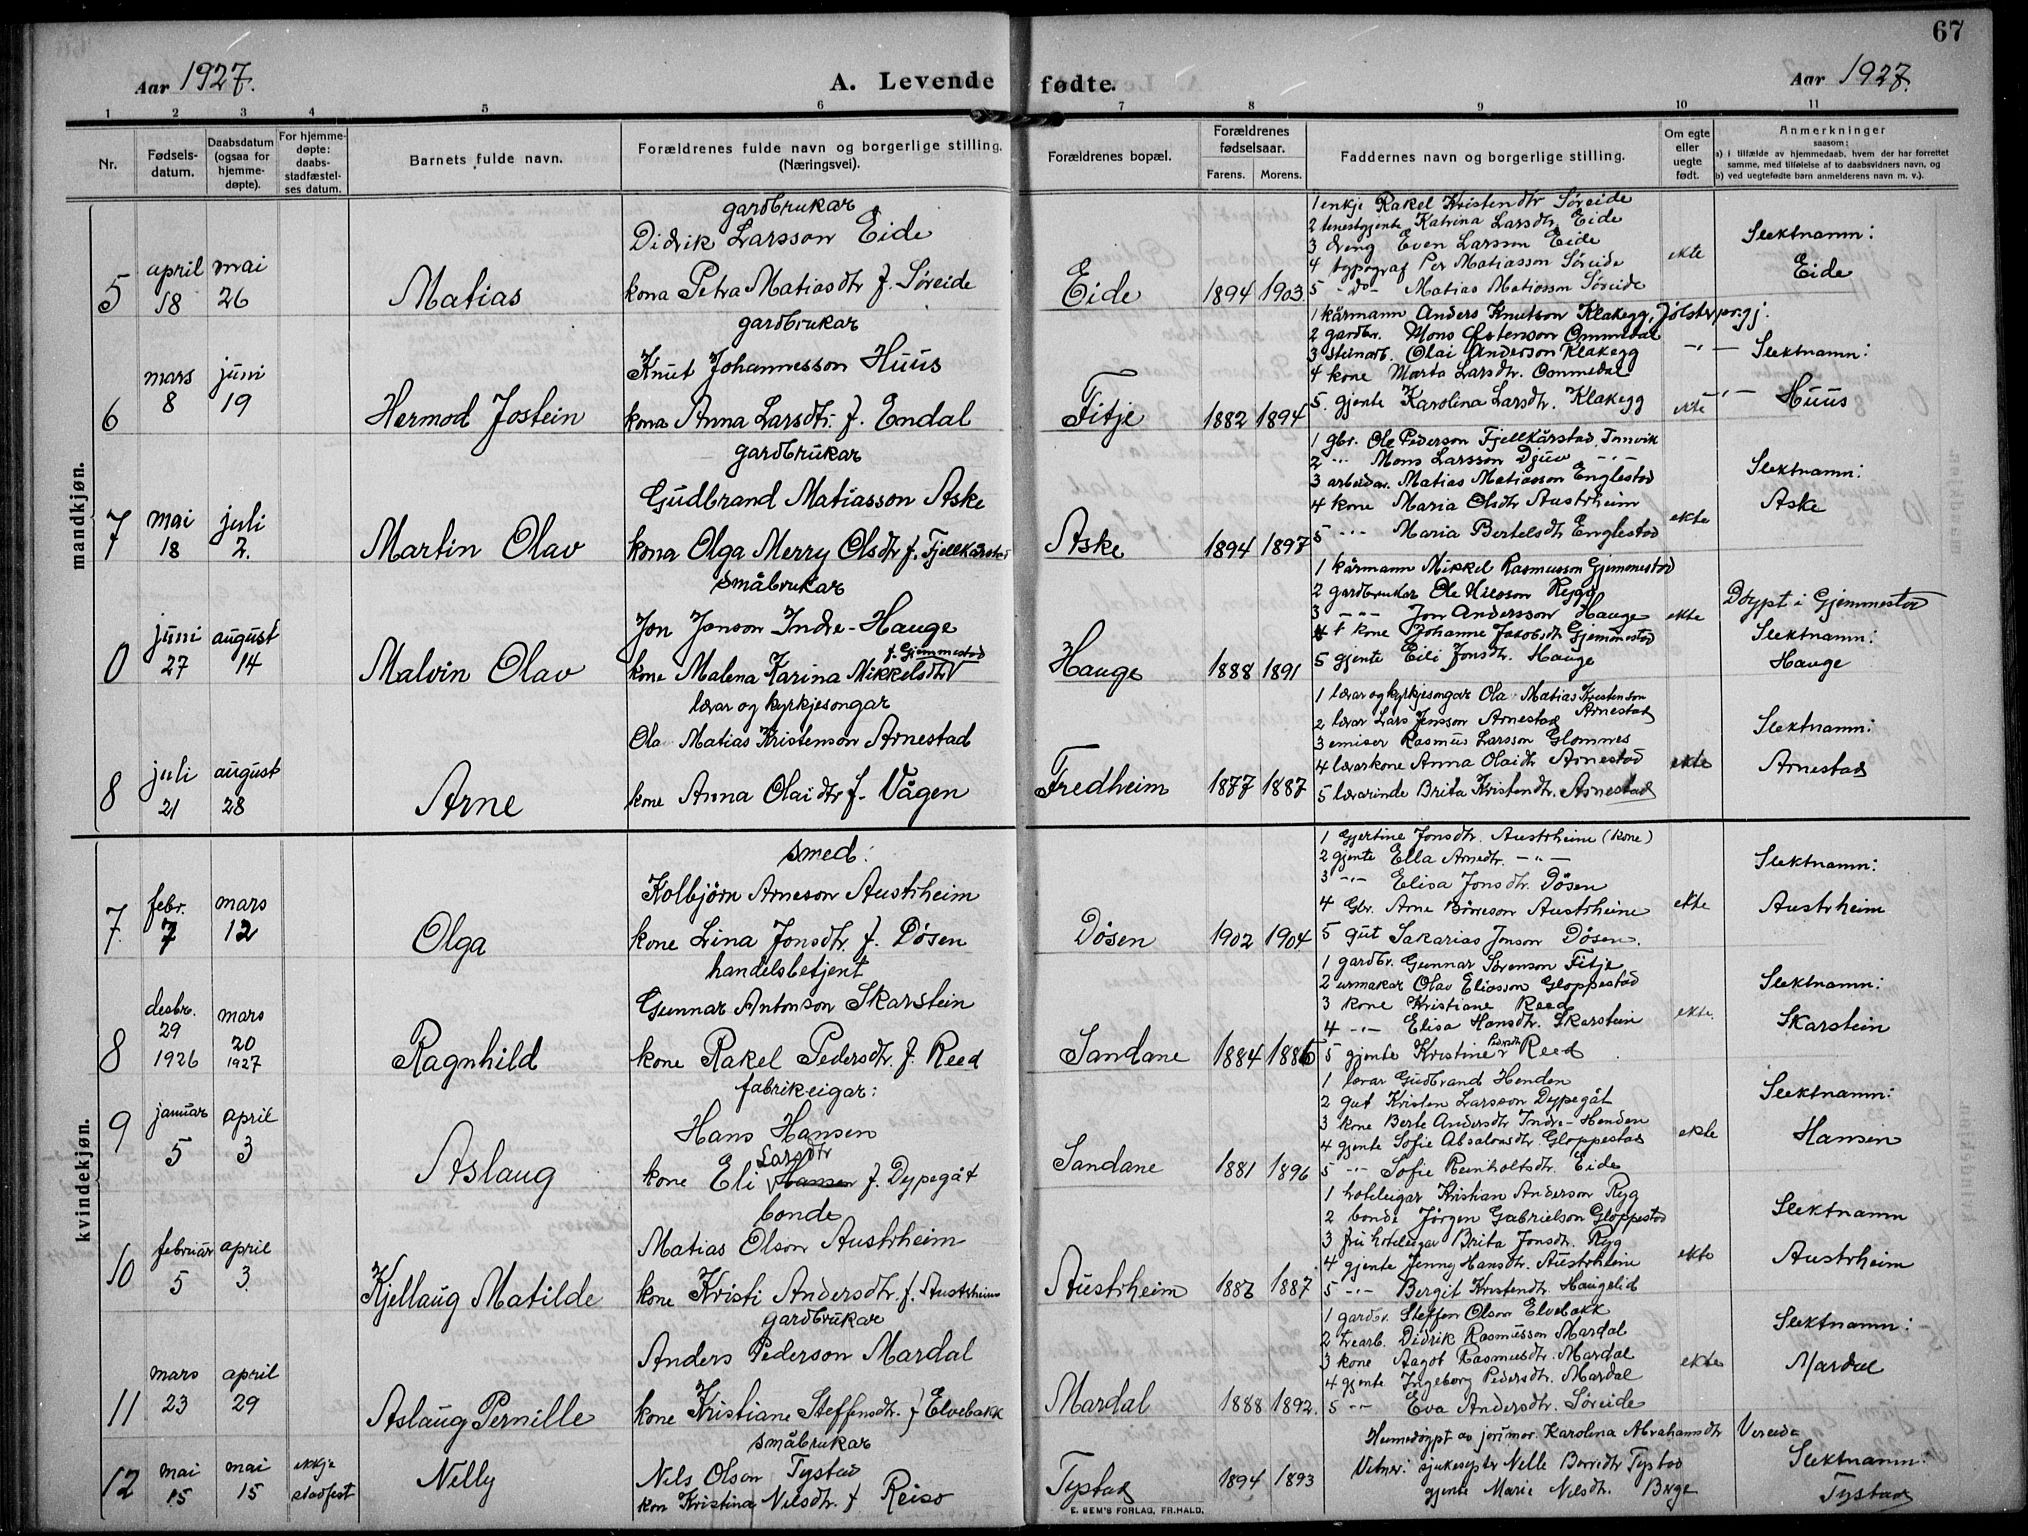 67
Aar 1927.
A. Levende fødte.
Aar 1927.
1 2 3 4 5 6 7 8 9 10 11
Nr.
Fødsels-
datum.
Daabsdatum
(ogsaa for
hjemme-
døpte).
For hjemme-
døpte:
daabs-
stadfæstel-
ses datum.
Barnets fulde navn.
Forældrenes fulde navn og borgerlige stilling.
(Næringsvei).
Forældrenes bopæl.
Forældrenes
fødselsaar.
Farens. Morens.
Faddernes navn og borgerlige stilling.
Om egte
eller
uegte
født.
Anmerkninger
saasom:
a) i tilfælde av hjemmedaab, hvem der har forrettet
samme, med tilføielse af to daabsvidners navn, og
b) ved uegtefødte barn anmelderens navn m. v.).
mandkjøn.
5
april
18
mai
26
Matias
gardbrukar
Didrik Larsson Eide
kona Petra Matiasdtr f. Søreide
Eide
1894 1903
1 enkje Rakel Kristendtr Søreide
2 tenestgjente Katrina Larsdtr Eide
3 dreng Even Larsson Eide
4 typograf Per Matiasson Søreide
5 -do- Matias Matiasson Søreide
ekte
Slektnamn:
Eide
6
mars
8
juni
19
Hermod Jostein
gardbrukar
Knut Johannesson Huus
kona Anna Larsdtr. f. Endal
Fitje
1882 1894
1 kårmann Anders Knutson Klakegg, Jølster pr.gj.
2 gardbr. Mons Østenson Ommedal
3 steinarb. Olai Anderson Klakegg
4 kone Marta Larsdtr. Ommedal
5. gjente Karolina Larsdtr. Klakegg
ekte
Slektnamn:
Huus
7
mai
18
juli
2.
Martin Olav
gardbrukar
Gudbrand Matiasson Aske
kona Olga Merry Olsdtr f. Fjellkårstad
Aske
1894 1897
1 gbr. Ole Pederson Fjellkårstad, Innvik
2 -"- Mons Larsson Djuv -"-
3 arbeidar. Matias Matiasson Englestad
4 kone Maria Olsdtr Austrheim
5 -"- Maria Bertelsdtr Englestad
ekte
Slektnamn:
Aske
0
juni
27
august
14
Malvin Olav
småbrukar
Jon Jonson Indre-Hauge
f. Gjemmestad
kone Malena Karina Mikkelsdtr
Hauge
1888 1891
1 kårmann Mikkel Rasmusson Gjemmestad
2 gardbrukar Ole Nilsson Rygg
3 -"- Jon Andersson Hauge
4 kone Johanne Jakobsdtr Gjemmestad
5 gjente Eili Jonsdtr. Hauge
ekte
Døypt i Gjemmestad
Slektnamn:
Hauge
8
juli
21
august
28
Arne
lærar og kyrkjesongar
Ola Matias Kristenson Arnestad
kone Anna Olaidtr f. Vågen
Fredheim
1877 1887
1 lærar og kyrkjesongar Ola Matias Kristenson
Arnestad
2 lærar Lars Jensson Arnestad
3 emisær Rasmus Larsson Glommes
4 lærarkone Anna Olaidtr Arnestad
5 lærarinde Brita Kristendtr. Arnestad
ekte
Slektnamn:
Arnestad
kvindekjøn.
7.
febr.
7
mars
12
Olga
smed:
Kolbjørn Arneson Austrheim
kone Lina Jonsdtr. f. Døsen
Døsen
1902 1904
1 Gjertine Jonsdtr. Austrheim (kone)
2 gjente Ella Arnedtr. -"-
3 -"- Elisa Jonsdtr. Døsen
4 Gbr. Arne Børreson Austrheim
5 gut Sakarias Jonson Døsen.
ekte
Slektnamn:
Austrheim
8
desbr.
29
1926
mars
20
1927
Ragnhild
handelsbetjent
Gunnar Antonson Skarstein
kone Rakel Pedersdtr. f. Reed
Sandane
1884 1886
1 gardbr. Gunnar Sørenson Fitje
2 urmakar Olav Eliasson Gloppestad
3 kone Kristiane Reed
4 -"- Elisa Hansdtr. Skarstein
5 gjente Kristine Pedersdtr Reed
ekte.
Slektnamn:
Skarstein
9
januar
5
april
3
Aslaug
fabrikeigar:
Hans Hansen
Larsdtr
kone Eli Hansen f. Dypegåt
Sandane
1881 1896
1 lærar Gudbrand Henden
2 gut Kristen Larsson Dypegåt
3 kone Berte Andersdtr Indre-Henden
4 gjente Sofie Absalonsdtr. Gloppestad
5 -"- Sofie Reinholtsdtr. Eide
ekte
Slektnamn:
Hansen
10
februar
5
april
3.
Kjellaug Matilde
bonde
Matias Olson Austrheim
kone Kristi Andersdtr. f. Austrheim
Austrheim
1887
1 hoteleigar Kristian Anderson Ryg
2 bonde Jørgen Gabrielson Gloppestad
3 fru hoteleigar Brita Jonsdtr. Ryg
4 gjente Jenny Hansdtr. Austrheim
5 -"- Bergit Kristendtr. Haugelid
ekte
Slektnamn
Austrheim
11
mars
23
april
29
Aslaug Pernille
gardbrukar
Anders Pederson Mardal
kone Kristiane Steffensdtr. f Elvebakk
Mardal
1888 1892.
1 gardbr. Steffen Olson Elvebakk
2 trearb. Didrik Rasmusson Mardal
3 kone Aagot Rasmusdtr. Mardal
4 gjente Ingeborg Pedersdtr. Mardal
5 -"- Eva Andersdtr. Søreide
ekte
Slektnamn:
Mardal
12
mai
15
mai
15
ekkje
stadfest
Nelly
småbrukar
Nils Olson Tystad
kon Kristina Nilsdtr. f Reiso
Tystad
1894 1893
Heimedøypt av jorimor. Karolina Abrahamsdtr Vereide
Vitner: sjukesyster Nelle Børredtr Tystad
gjente Marie Nilsdtr. Berge
Slektnamn:
Tystad
E. SEM'S FORLAG, FR.HALD.